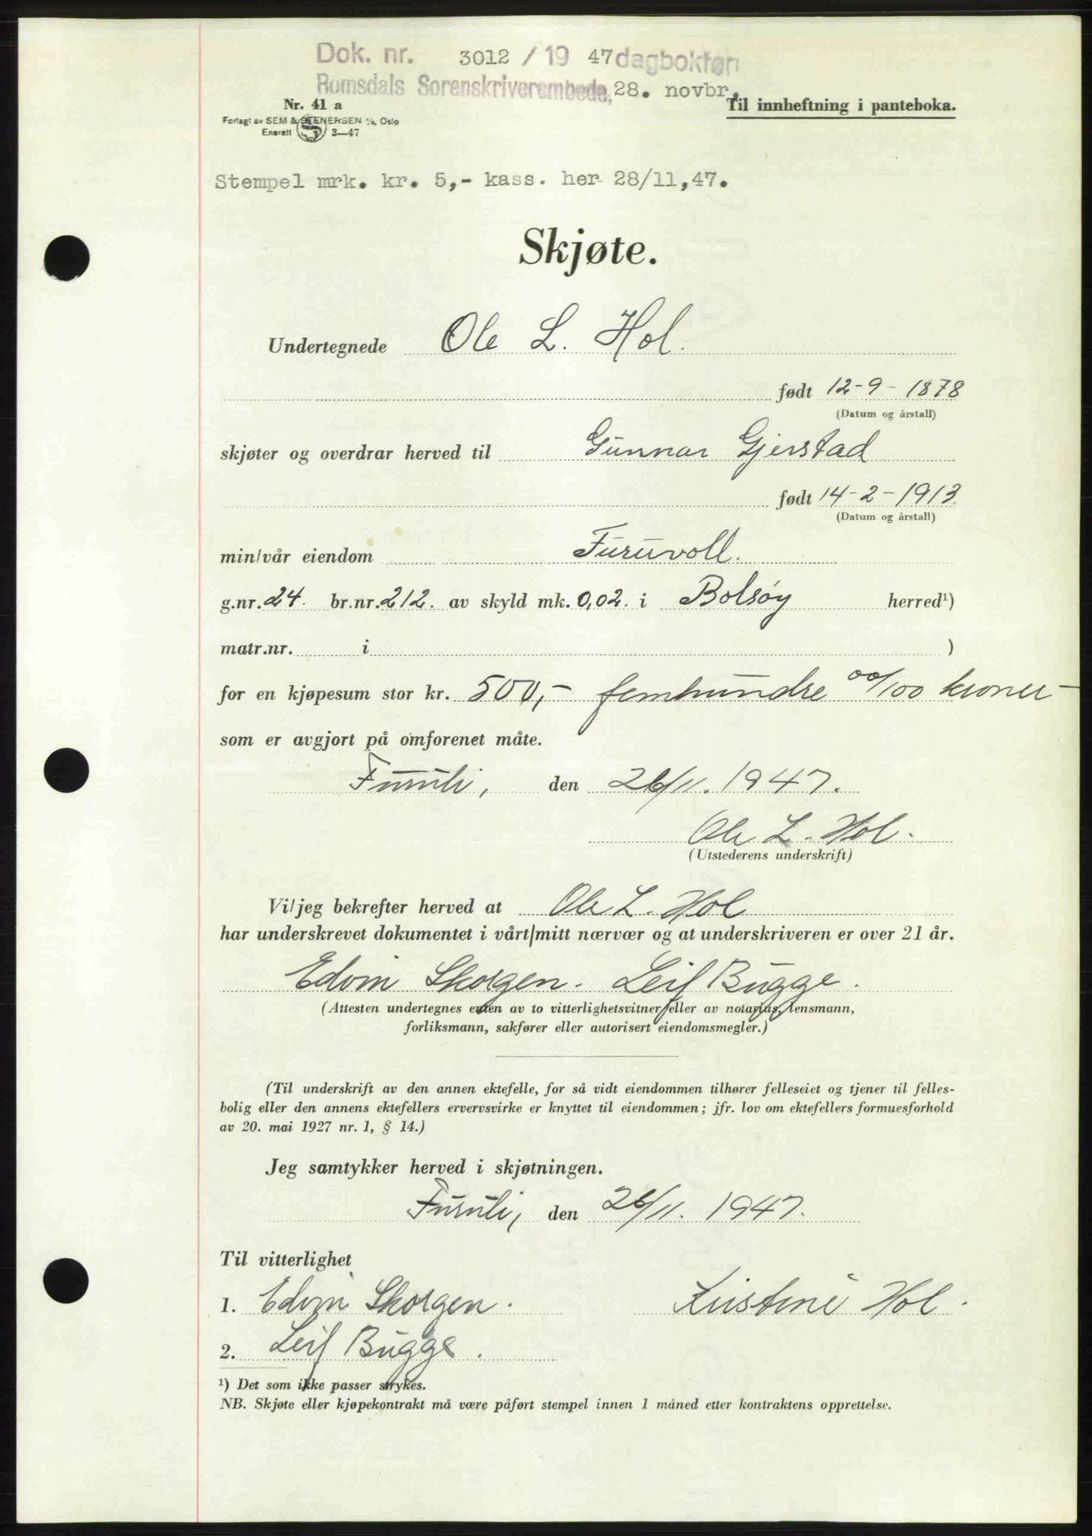 Dok. nr. 3012 / 19 47 dagboken
Romsdals Sorenskriverembede, 28. novbr.
Til innheftning i panteboka.
Nr. 41 a
Forlagt av SEM & STENERSEN A/S, Oslo
Enerett S 3—47
Stempel mrk. kr. 5,- kass. her 28/11,47.
Skjøte.
Undertegnede Ole L. Hol.
født 12-9-1878
(Datum og årstall)
skjøter og overdrar herved til Gunnar Gjerstad
født 14-2-1913
(Datum og årstall)
min/vår eiendom Furuvoll.
g.nr. 24. br.nr. 212. av skyld mk. 0,02. i Bolsøy herred¹)
matr.nr. i )
for en kjøpesum stor kr. 500,- femhundre 00/100 kroner
som er avgjort på omforenet måte.
Furuli, den 26/11. 1947.
Ole L. Hol.
(Utstederens underskrift)
Vi/jeg bekrefter herved at Ole L. Hol
har underskrevet dokumentet i vårt/mitt nærvær og at underskriveren er over 21 år.
Edvin Skorgen. Leif Bugge.
(Attesten undertegnes enten av to vitterlighetsvitner eller av notarius, lensmann,
forliksmann, sakfører eller autorisert eiendomsmegler.)
(Til underskrift av den annen ektefelle, for så vidt eiendommen tilhører felleseiet og tjener til felles-
bolig eller den annens ektefellers ervervsvirke er knyttet til eiendommen; jfr. lov om ektefellers formuesforhold
av 20. mai 1927 nr. 1, § 14.)
Jeg samtykker herved i skjøtningen.
Furuli, den 26/11. 1947.
Til vitterlighet
1. Edvin Skorgen. Kristine Hol.
2. Leif Bugge.
¹) Det som ikke passer strykes.
NB. Skjøte eller kjøpekontrakt må være påført stempel innen 1 måned etter kontraktens opprettelse.